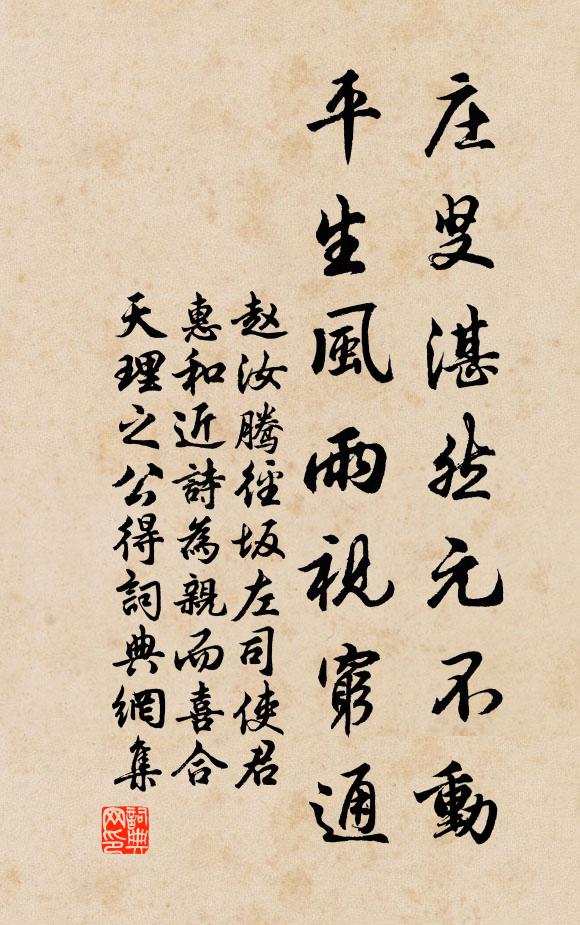 庄叟湛然元不動
平生風雨視窮通
赵汝腾徑坂左司使君
惠和近詩為親而喜合
天理之公得詞典網集
詞典网印